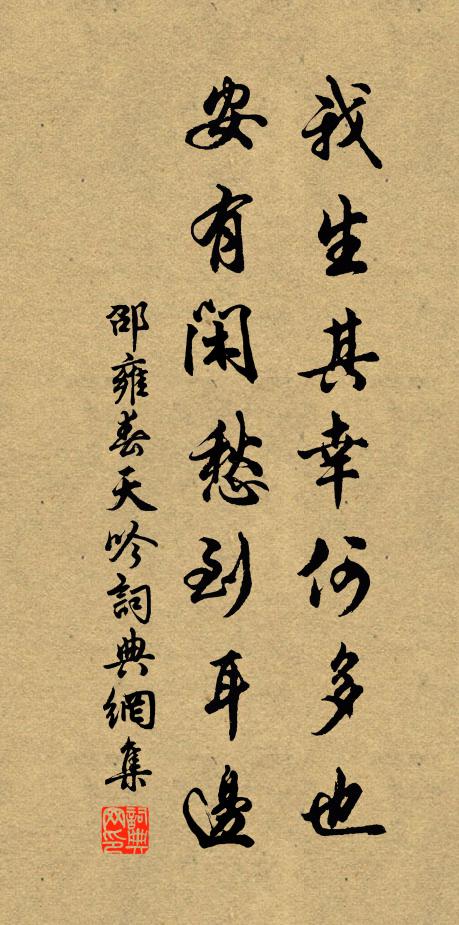 我生其幸何多也
安有閑愁到耳邊
邵雍春天吟詞典網集
詞典网印